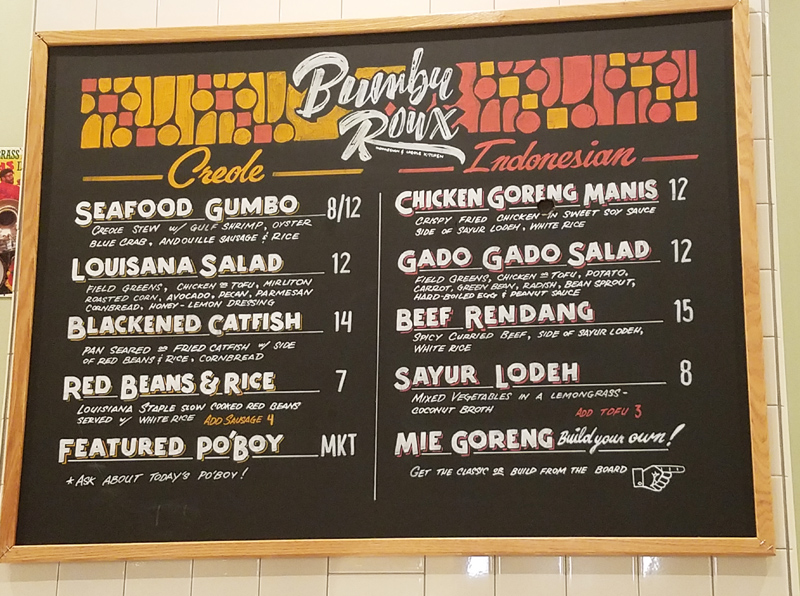 Bumbu
Roux
Creole
SEAFOOD GUMBO 8/12
CREOLE STEW W/ GULF SHRIMP, OYSTER
BLUE CRAB, ANDOUILLE SAUSAGE & RICE
LOUISANA SALAD 12
FIELD GREENS, CHICKEN OR TOFU, MIRLITON
ROASTED CORN, AVOCADO, PECAN, PARMESAN
CORNBREAD, HONEY-LEMON DRESSING
BLACKENED CATFISH 14
PAN SEARED OR FRIED CATFISH W/ SIDE
OF RED BEANS & RICE, CORNBREAD
RED BEANS & RICE 7
LOUISIANA STAPLE SLOW COOKED RED BEANS
SERVED W/ WHITE RICE ADD SAUSAGE 4
FEATURED PO'BOY MKT
*ASK ABOUT TODAY'S PO'BOY!
Indonesian
CHICKEN GORENG MANIS 12
CRISPY FRIED CHICKEN IN SWEET SOY SAUCE
SIDE OF SAYUR LODEH, WHITE RICE
GADO GADO SALAD 12
FIELD GREENS, CHICKEN OR TOFU, POTATO,
CARROT, GREEN BEAN, RADISH, BEAN SPROUT,
HARD-BOILED EGG & PEANUT SAUCE
BEEF RENDANG 15
SPICY CURRIED BEEF, SIDE OF SAYUR LODEH,
WHITE RICE
SAYUR LODEH 8
MIXED VEGETABLES IN A LEMONGRASS-
COCONUT BROTH ADD TOFU 3
MIE GORENG Build your own!
GET THE CLASSIC OR BUILD FROM THE BOARD